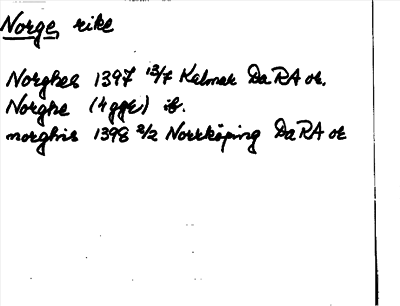 Norge, rike
Norghes 1397 13/7 Kalmar DaRA or.
Norghe (4 ggr) ib.
norghis 1398 2/2 Norrköping DaRA or